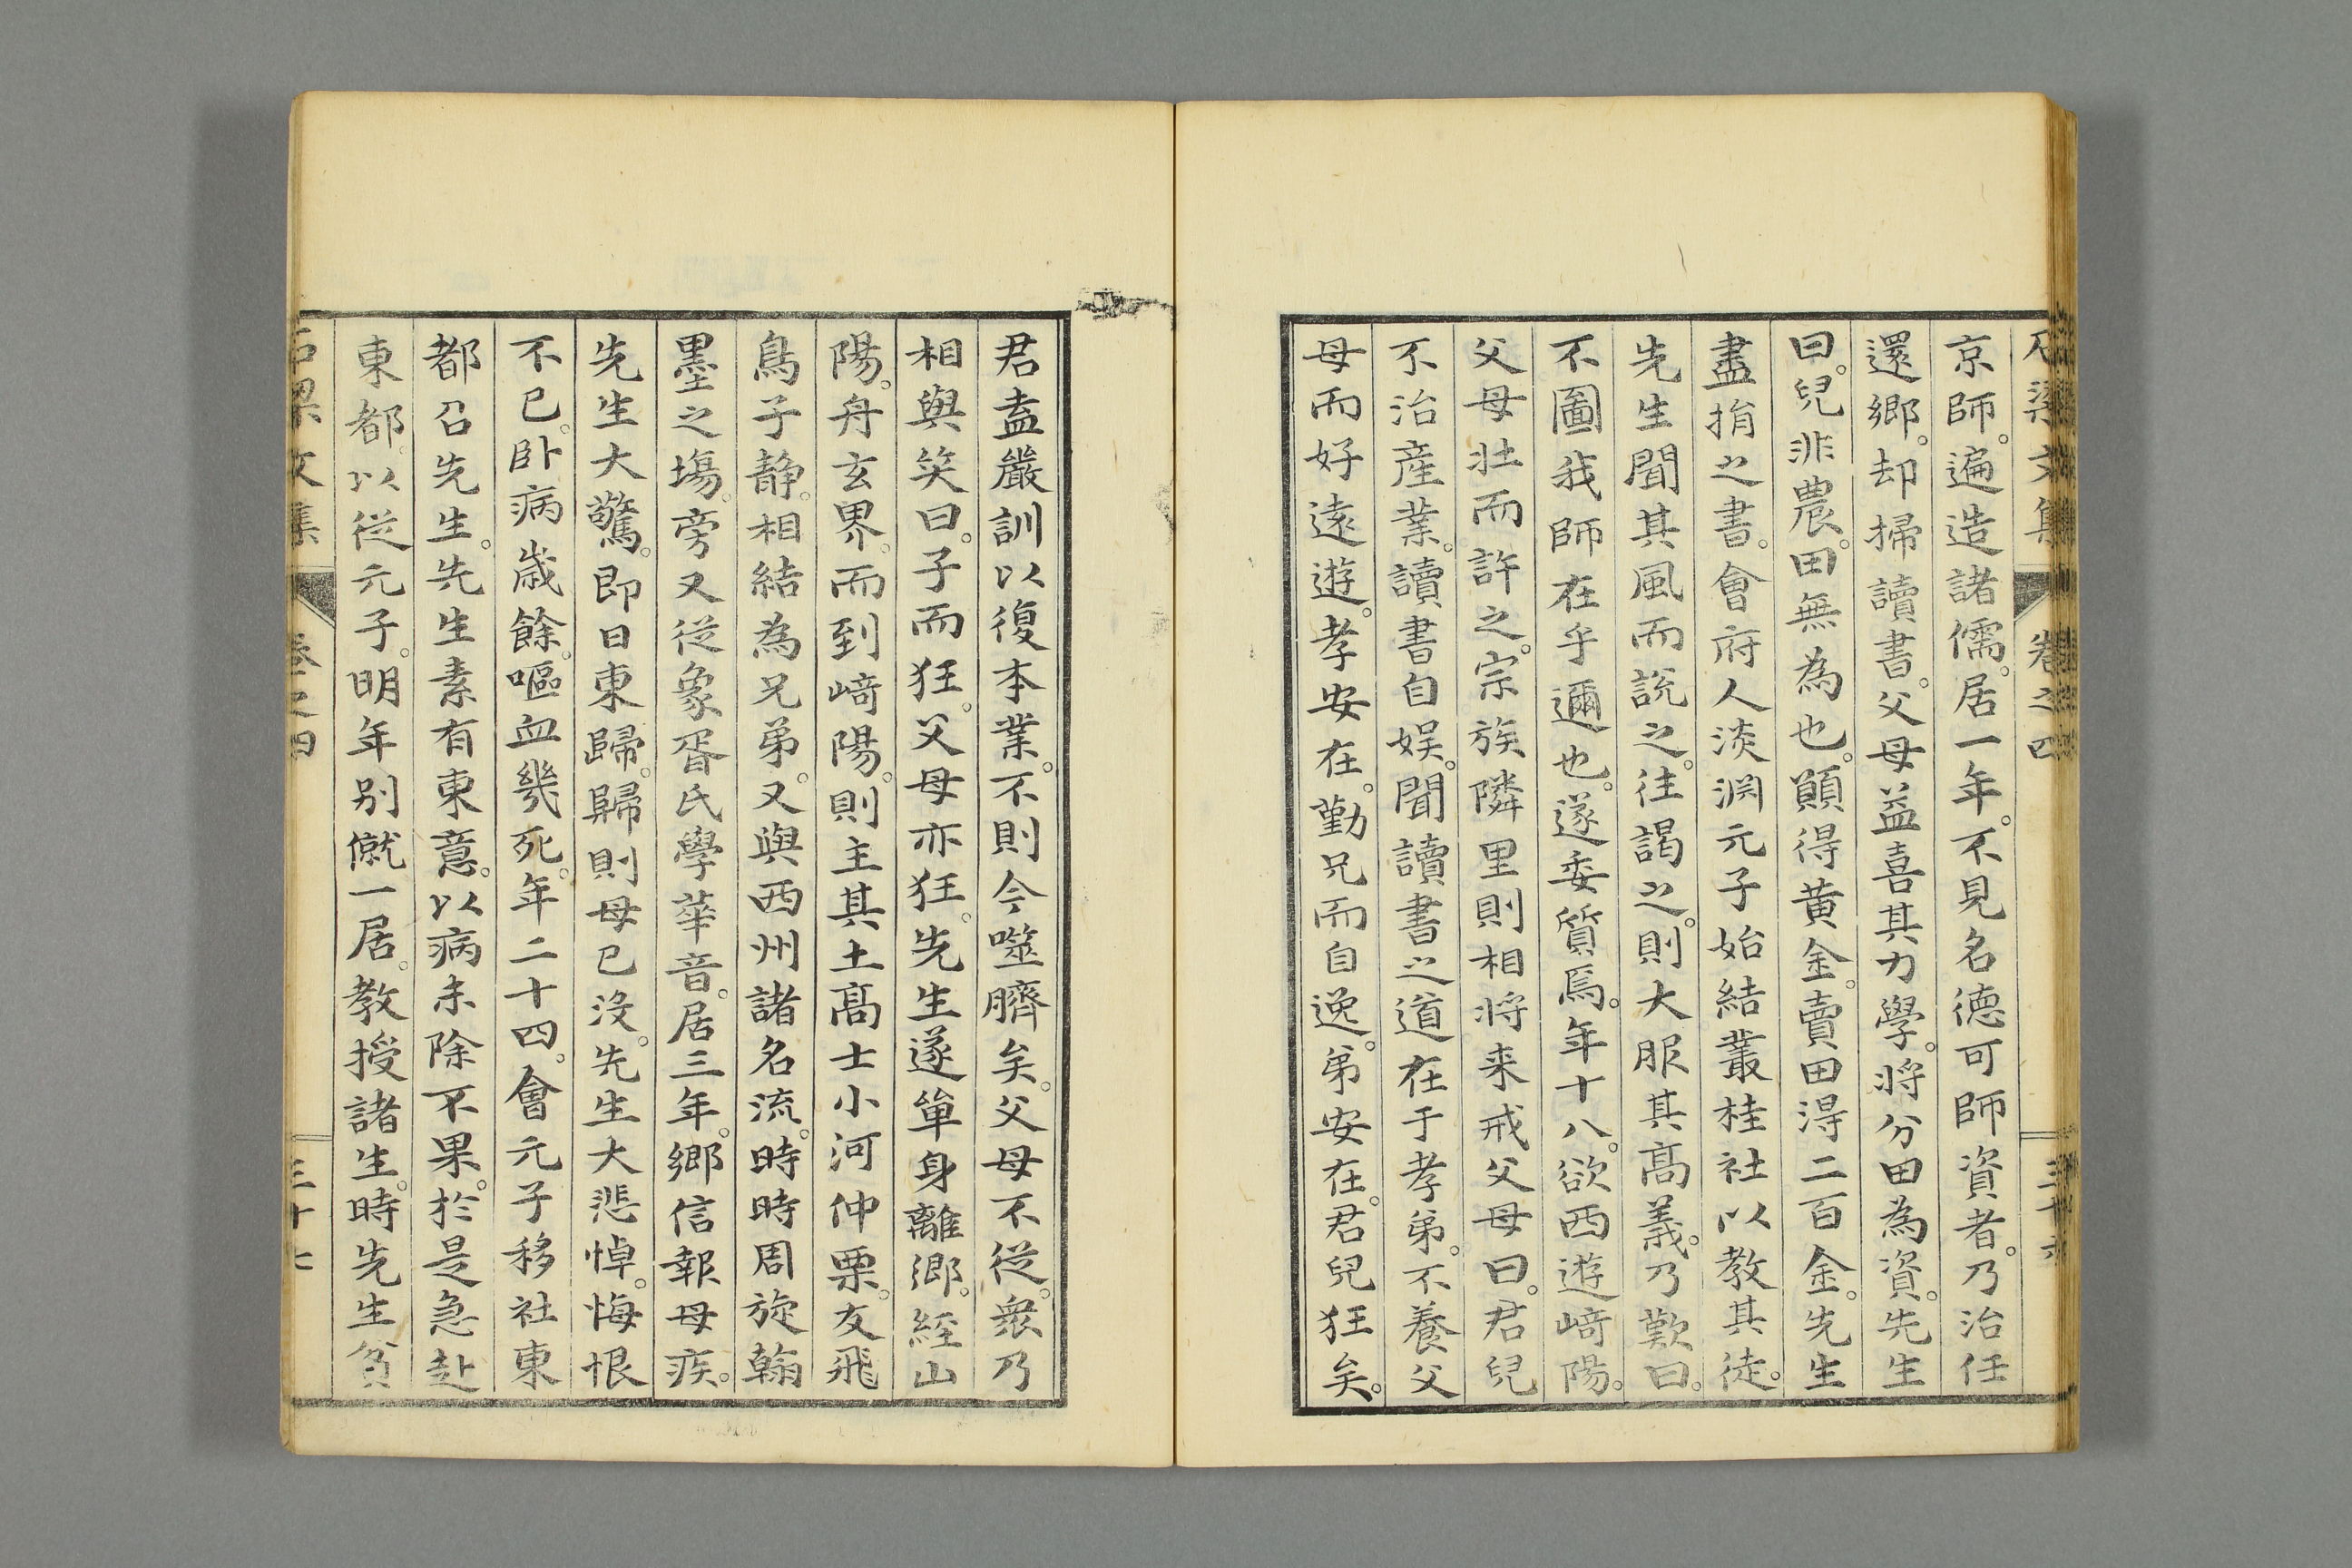 石梁文集 卷之四 三十六
京師。遍造諸儒。居一年。不見名德可師資者。乃治任
還鄉。却掃讀書。父母益喜其力學。將分田為資。先生
曰。兒非農。田無為也。願得黄金。賣田得二百金。先生
盡捐之書。會府人淡淵元子始結叢桂社以教其徒。
先生聞其風而說之。往謁之。則大服其髙義。乃歎曰。
不圖我師在乎邇也。遂委質焉。年十八。欲西遊﨑陽。
父母壯而許之。宗族隣里則相將来戒父母曰。君兒
不治産業。讀書自娱。聞讀書之道在于孝弟。不養父
母而好遠遊。孝安在。勤兄而自逸。弟安在。君兒狂矣。
君盍嚴訓以復本業。不則今噬臍矣。父母不從。衆乃
相與笑曰。子而狂。父母亦狂。先生遂單身離鄉。經山
陽。舟玄界。而到﨑陽。則主其土髙士小河仲栗。友飛
鳥子靜。相結為兄弟。又與西州諸名流。時時周旋翰
墨之塲。旁又從象胥氏學華音。居三年。鄉信報母疾。
先生大驚。即日東歸。歸則母已沒。先生大悲悼。悔恨
不已。卧病歲餘。嘔血幾死。年二十四。會元子移社東
都召先生。先生素有東意。以病未除不果。於是急赴
東都。以從元子。明年别僦一居。教授諸生。時先生貧
石梁文集 卷之四 三十七